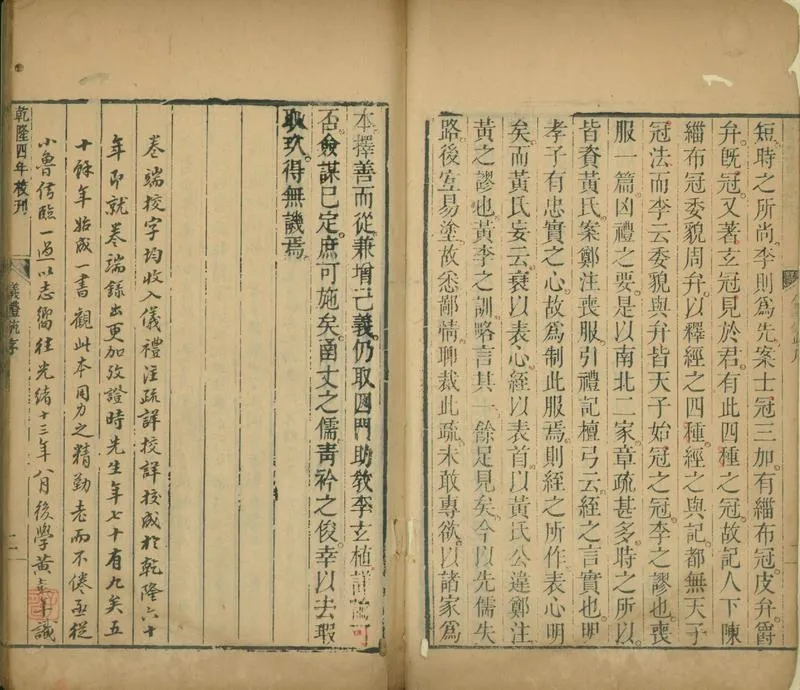 短時之所尚李則爲先案士冠三加有緇布冠皮弁爵
弁既冠又著玄冠見於君有此四種之冠故記人下陳
緇布冠委貌周弁以釋經之四種經之與記都無天子
冠法而李云委貌與弁皆天子始冠之冠李之謬也喪
服一篇凶禮之要是以南北二家章疏甚多時之所以
皆資黃氏案鄭注喪服引禮記檀弓云絰之言實也明
孝子有忠實之心故爲制此服焉則絰之所作表心明
矣而黃氏妄云衰以表心絰以表首以黃氏公違鄭注
黃之謬也黃李之訓略言其一餘足見矣今以先儒失
路後宜易塗故悉鄙情聊裁此疏未敢專欲以諸家爲
本擇善而從兼增己義仍取四門助敎李玄植詳論可
否僉謀已定庶可施矣函丈之儒靑衿之俊幸以去瑕
取玖得無譏焉
卷端校字均收入儀禮注疏詳校詳校成於乾隆六十
年即就卷端錄出更加攷證時先生年七十有九矣五
十餘年始成一書觀此本用力之精勤老而不倦亟從
小魯臨一過以志嚮往光緒十三年八月後學黃識
乾隆四年校刊 儀禮疏序 二